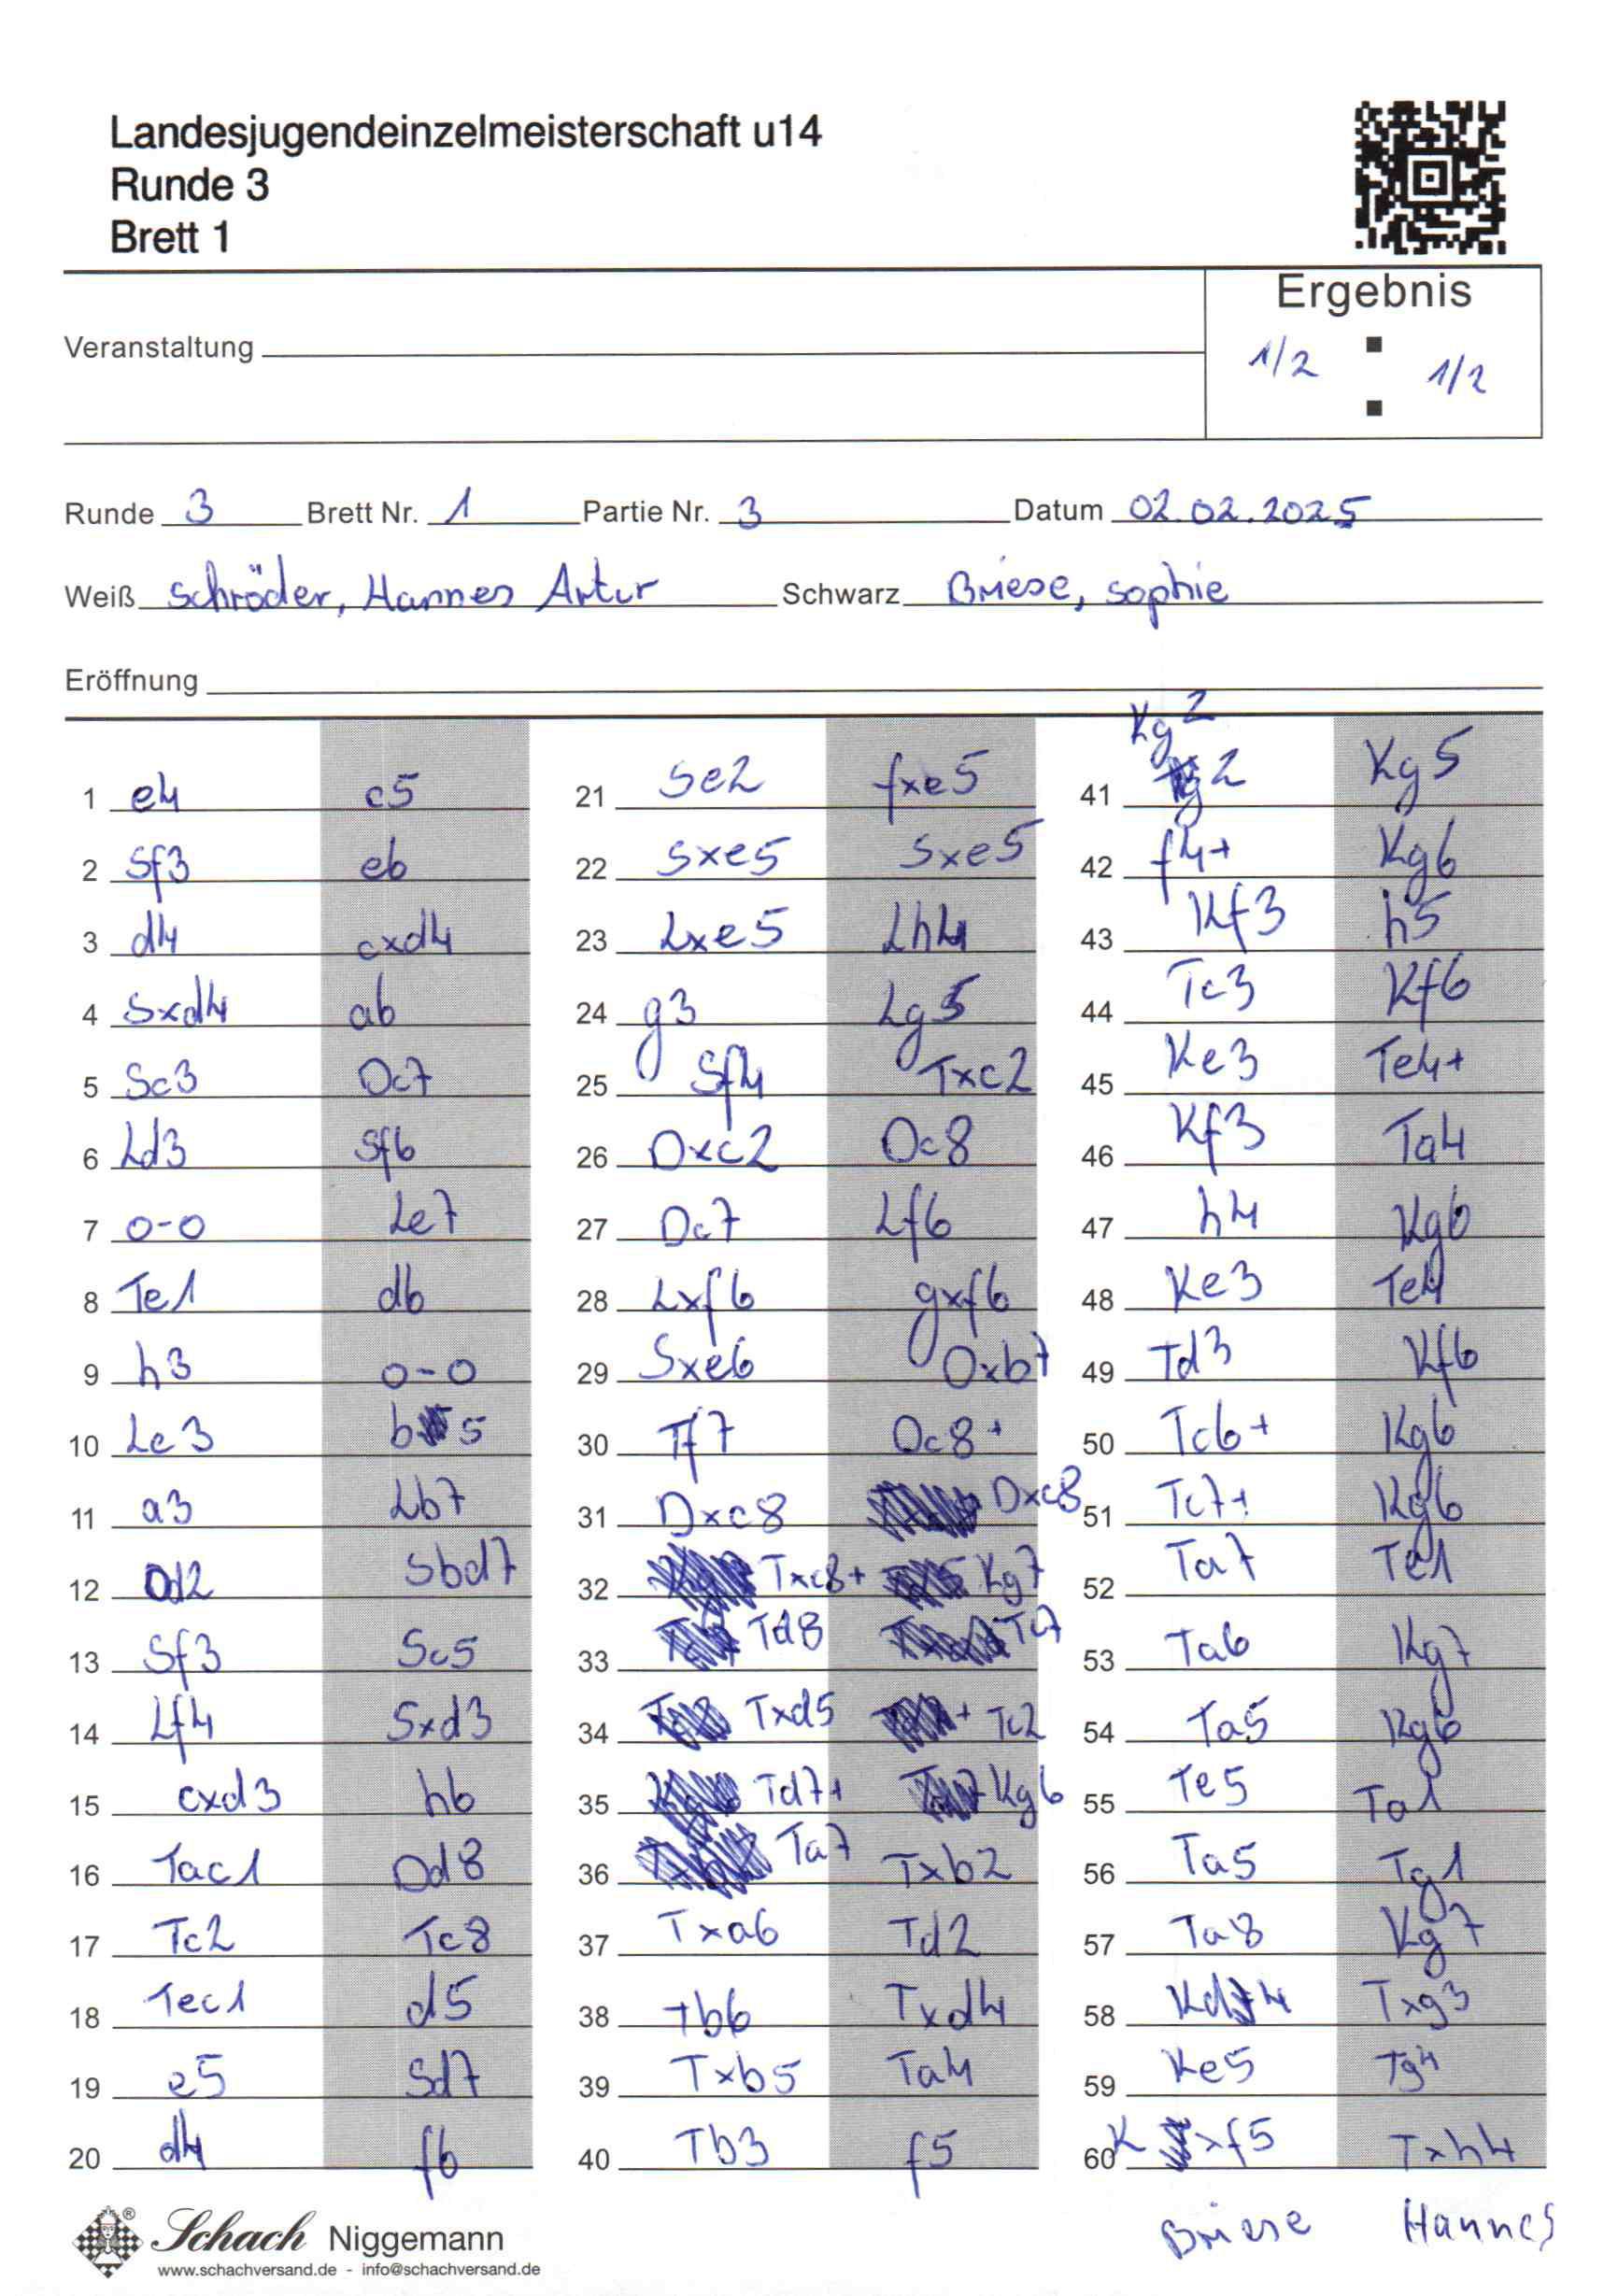 Landesjugendeinzelmeisterschaft u14
Runde 3
Brett 1
Ergebnis
Veranstaltung
1/2 : 1/2
Runde 3 Brett Nr. 1 Partie Nr. 3 Datum 02.02.2025
Weiß Schröder, Hannes Artur Schwarz Briese, Sophie
Eröffnung
1 e4 c5
2 Sf3 e6
3 d4 cxd4
4 Sxd4 a6
5 Sc3 Dc7
6 Ld3 Sf6
7 0-0 Le7
8 Te1 d6
9 h3 0-0
10 Le3 b5
11 a3 Lb7
12 Dd2 Sbd7
13 Sf3 Sc5
14 Lf4 Sxd3
15 cxd3 h6
16 Tac1 Dd8
17 Tc2 Tc8
18 Tec1 d5
19 e5 Sd7
20 d4 f6
21 Se2 fxe5
22 Sxe5 Sxe5
23 Lxe5 Lh4
24 g3 Lg5
25 Sf4 Txc2
26 Dxc2 Dc8
27 Dc7 Lf6
28 Lxf6 gxf6
29 Sxe6 Dxb7
30 Tf7 Dc8+
31 Dxc8 Dxc8
32 Txc8+ Kg7
33 Td8 Tc7
34 Txd5 Tc2
35 Td7+ Kg6
36 Ta7 Txb2
37 Txa6 Td2
38 Tb6 Txd4
39 Txb5 Ta4
40 Tb3 f5
Kg2
41 g2 Kg5
42 f4+ Kg6
43 Kf3 h5
44 Tc3 Kf6
45 Ke3 Te4+
46 Kf3 Ta4
47 h4 Kg6
48 Ke3 Te4
49 Td3 Kf6
50 Tc6+ Kg6
51 Tc7+ Kg6
52 Ta7 Te1
53 Ta6 Kg7
54 Ta5 Kg6
55 Te5 Ta1
56 Ta5 Tg1
57 Ta8 Kg7
58 Kd4 Txg3
59 Ke5 Tg4
60 Kxf5 Txh4
Briese Hannes
Schach Niggemann
www.schachversand.de - info@schachversand.de